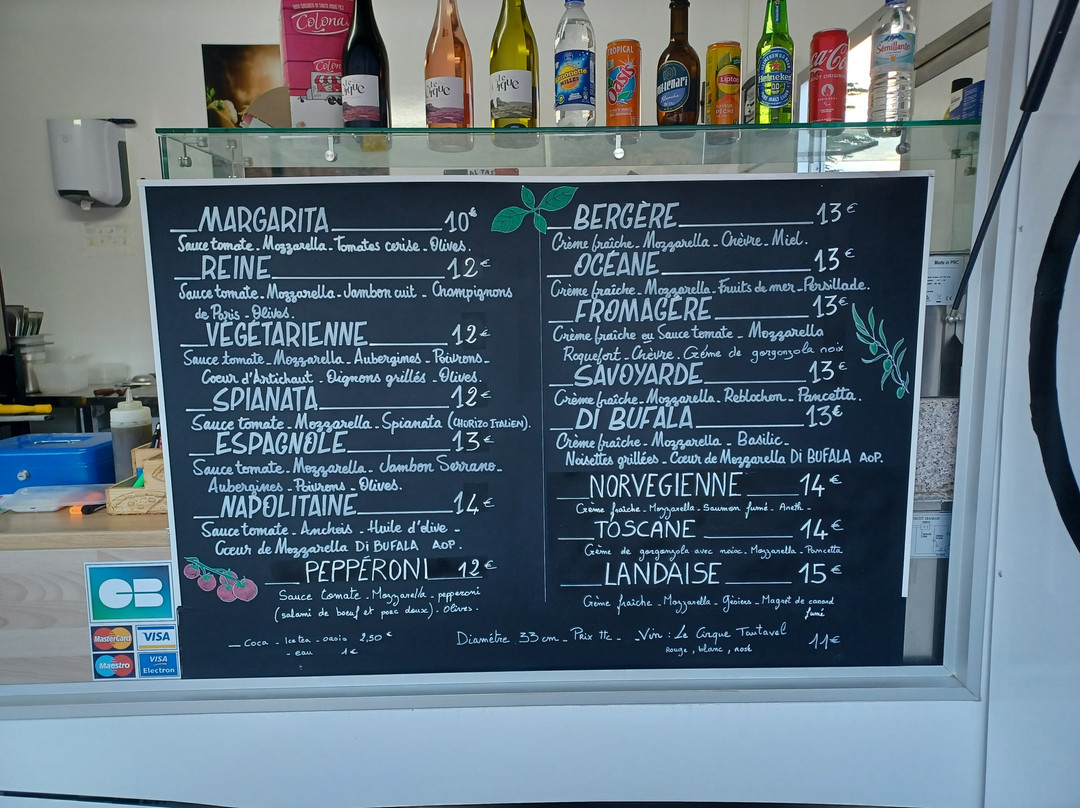 Colona
Colona
le
Cirque
TROPICAL
OASIS
Lipton
Heineken
0.0
Coca-Cola
GOÛT ORIGINAL
Sémillante
MARGARITA 10€
Sauce tomate - Mozzarella - Tomates cerise - Olives.
REINE 12€
Sauce tomate - Mozzarella - Jambon cuit - Champignons
de Paris - Olives.
VÉGÉTARIENNE 12€
Sauce tomate - Mozzarella - Aubergines - Poivrons -
Coeur d'Artichaut - Oignons grillés - Olives.
SPIANATA 12€
Sauce tomate - Mozzarella - Spianata (CHORIZO ITALIEN).
ESPAGNOLE 13€
Sauce tomate - Mozzarella - Jambon Serrano -
Aubergines - Poivrons - Olives.
NAPOLITAINE 14€
Sauce tomate - Anchois - Huile d'olive -
Coeur de Mozzarella DI BUFALA AOP.
PEPPÉRONI 12€
Sauce tomate - Mozzarella - pepperoni
(salami de boeuf et porc doux) - Olives.
BERGÈRE 13€
Crème fraîche - Mozzarella - Chèvre - Miel.
OCÉANE 13€
Crème fraîche - Mozzarella - Fruits de mer - Persillade.
FROMAGÈRE 13€
Crème fraîche ou Sauce tomate - Mozzarella
Roquefort - Chèvre - Crème de gorgonzola noix
SAVOYARDE 13€
Crème fraîche - Mozzarella - Reblochon - Pancetta.
DI BUFALA 13€
Crème fraîche - Mozzarella - Basilic -
Noisettes grillées - Coeur de Mozzarella DI BUFALA AOP.
NORVEGIENNE 14€
Crème fraîche - Mozzarella - Saumon fumé - Aneth -
TOSCANE 14€
Crème de gorgonzola avec noix - Mozzarella - Pancetta
LANDAISE 15€
Crème fraîche - Mozzarella - Gésiers - Magret de canard
fumé
Coca - Ice tea - oasis 2,50€
- eau 1€
Diamétre 33 cm - Prix ttc - Vin : Le Cirque Tautavel 11€
Rouge, blanc, rosé
CB
MasterCard
VISA
Maestro
VISA
Electron